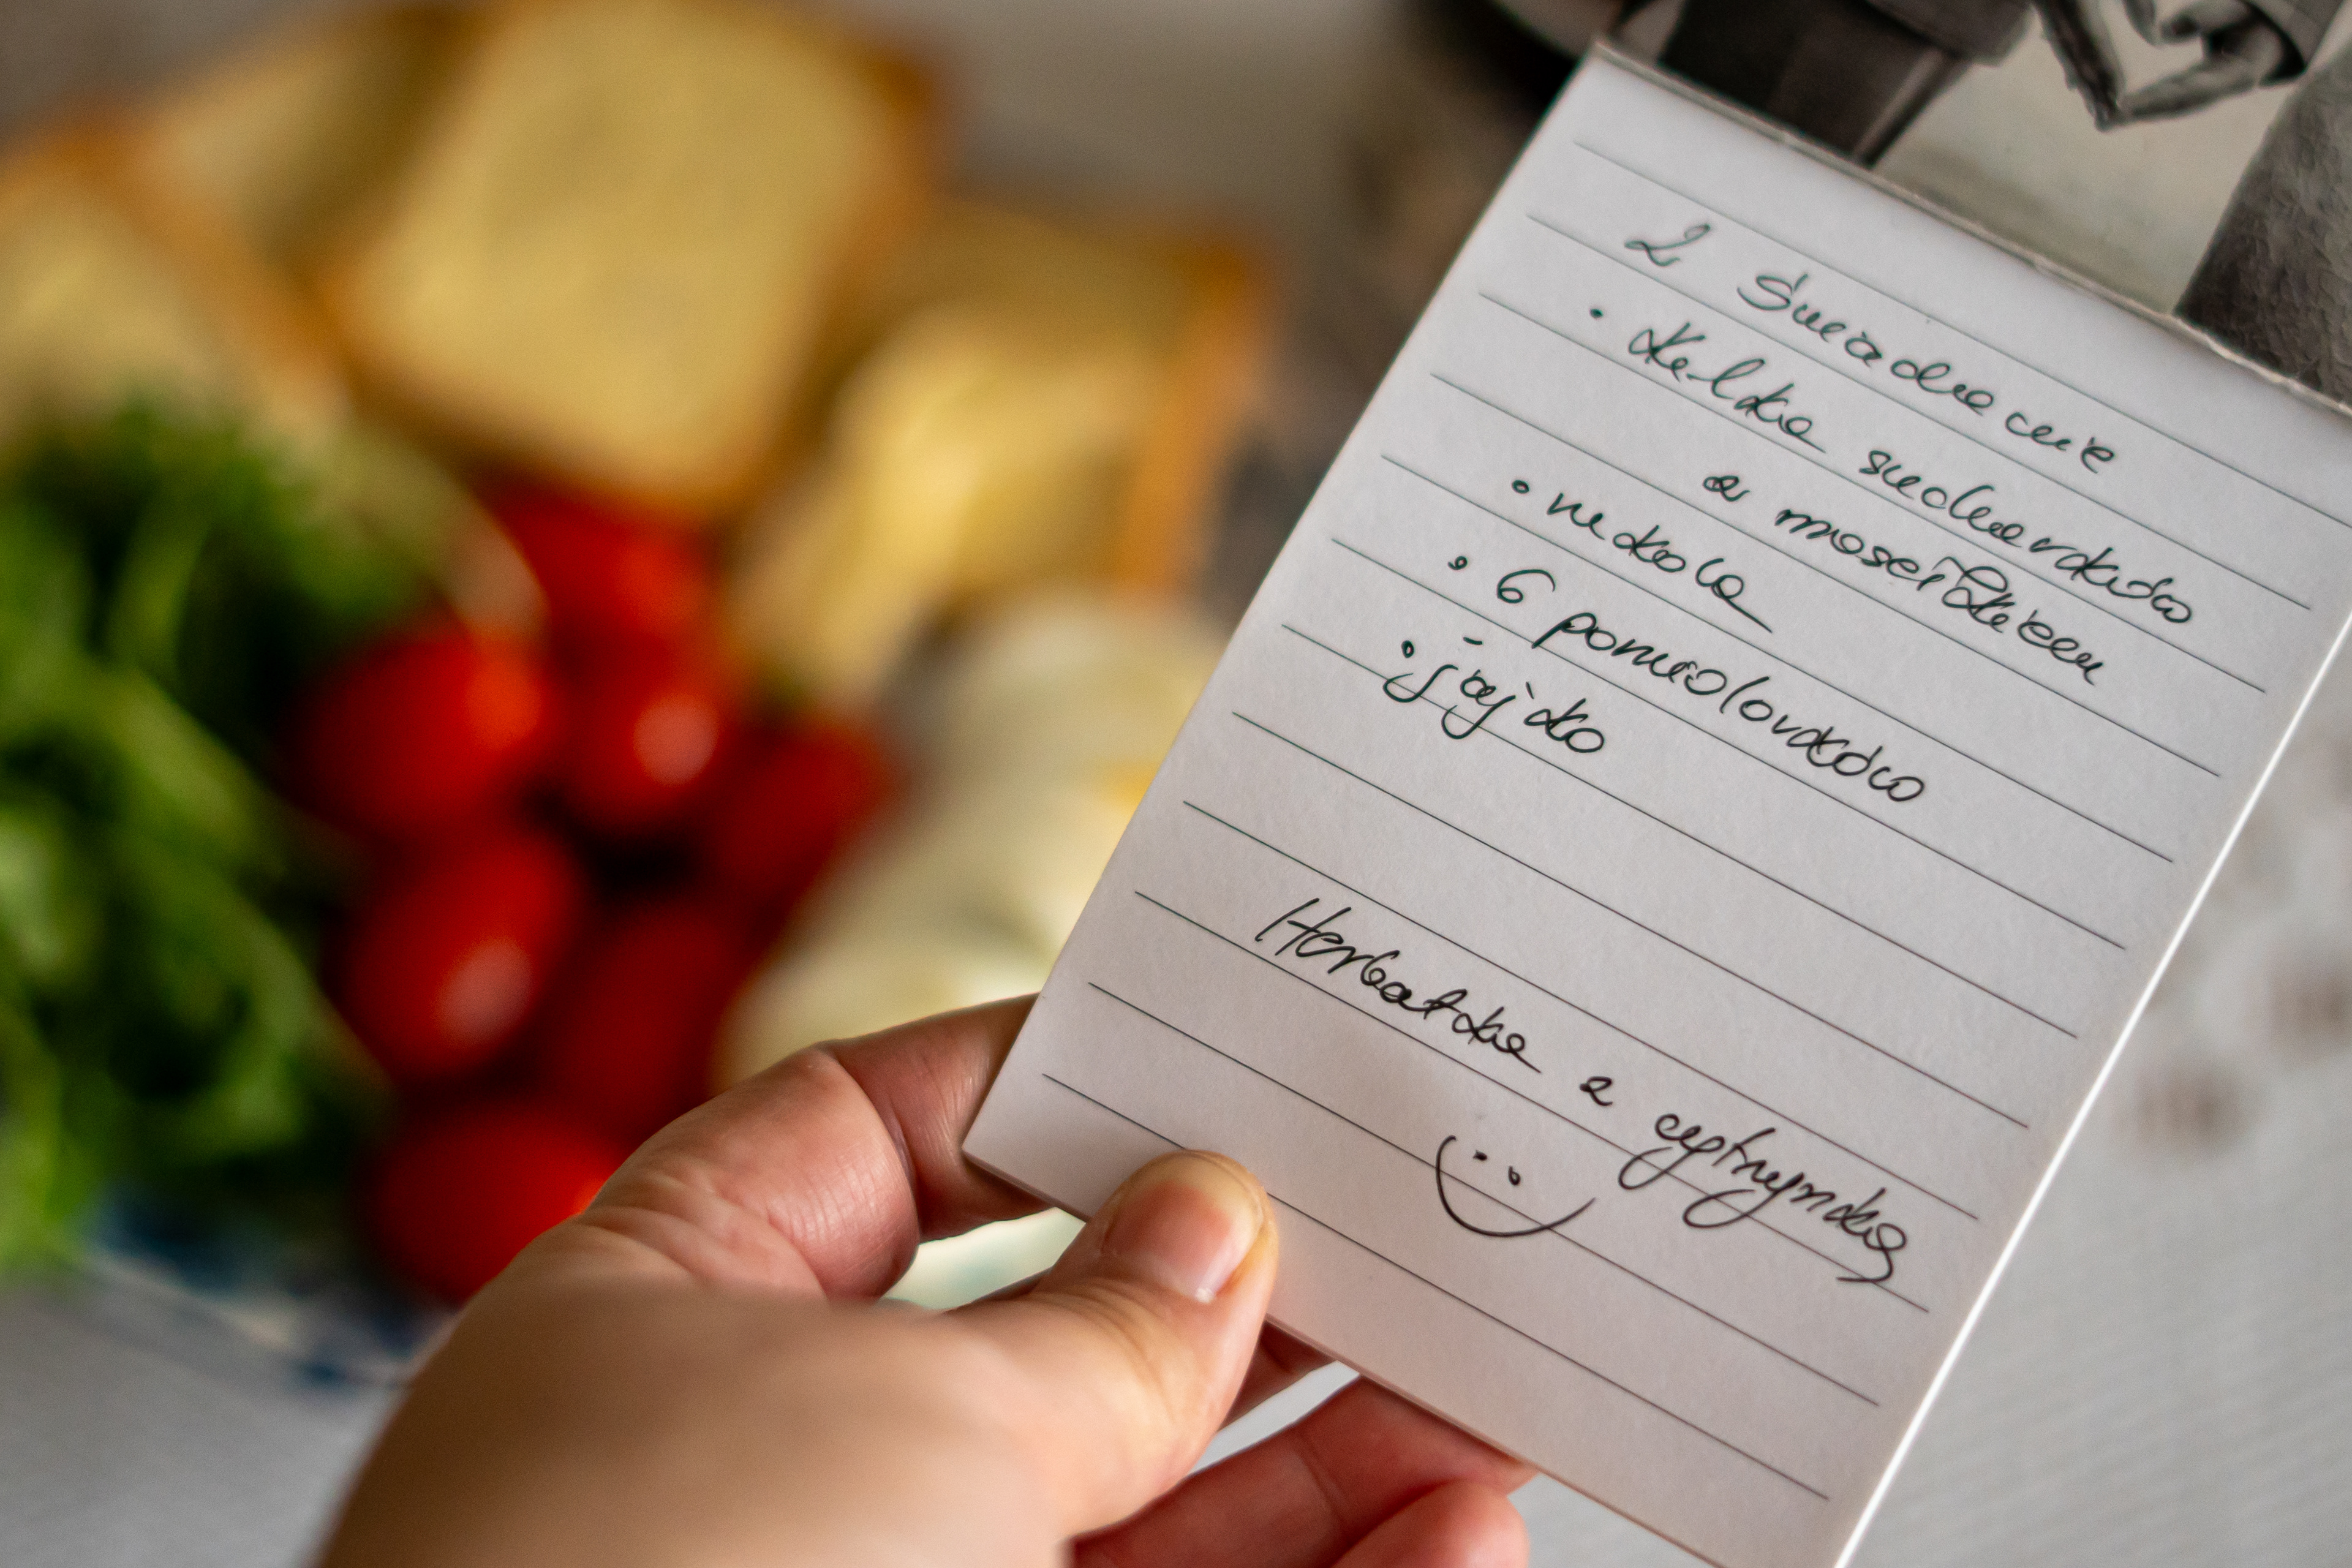 2 Śniadanie
• Kilka sucharków
z masełkiem
• rukola
• 6 pomidorków
• jajko
Herbatka z cytrynką